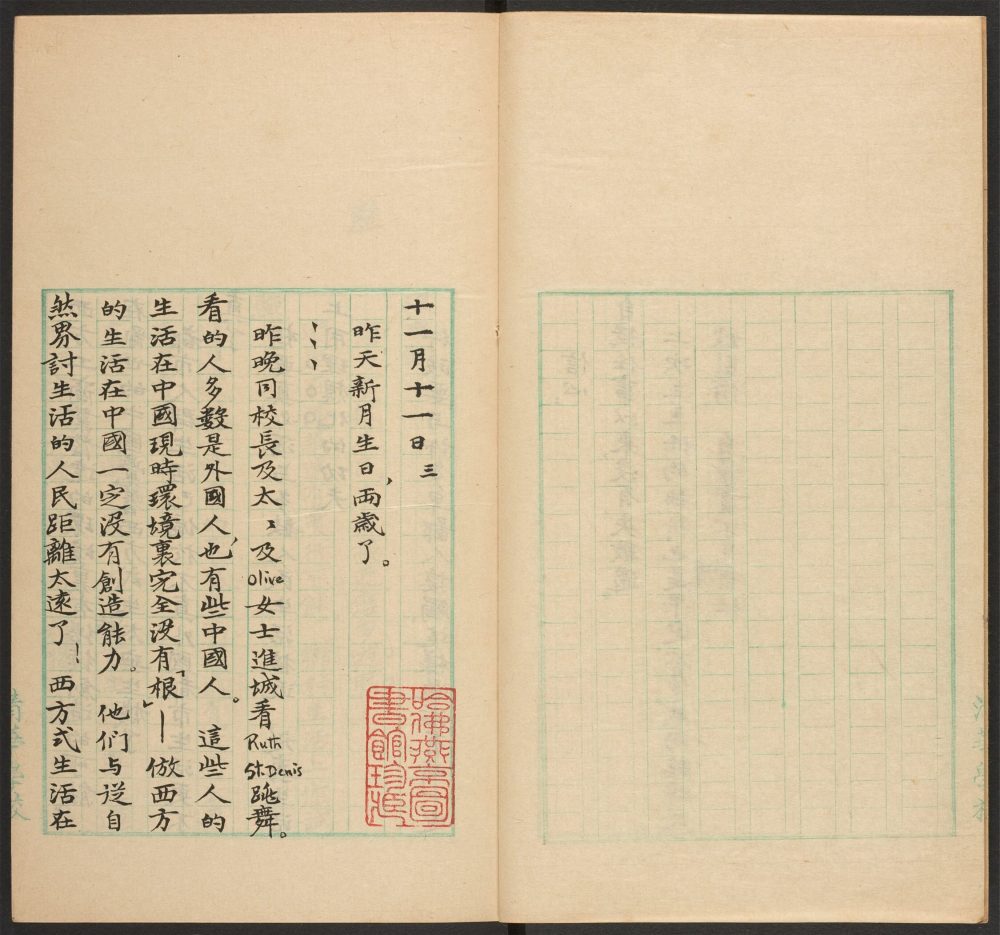 十一月十一日 三
昨天新月生日，兩歲了。
、、、
昨晚同校長及太、及Olive女士進城看Ruth St.Denis跳舞。
看的人多數是外國人，也有些中國人。這些人的
生活在中國現時環境裏完全没有「根」—倣西方
的生活在中國一定没有創造能力。他们与從自
然界討生活的人民距離太遠了！西方式生活在
哈佛燕京圖
書館珍藏